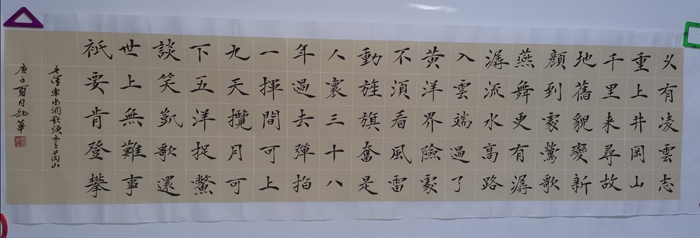 久有凌雲志
重上井岡山
千里来尋故
地舊貌變新
顏到處鶯歌
燕舞更有潺
潺流水高路
入雲端過了
黃洋界險處
不須看風雷
動旌旗奮是
人寰三十八
年過去彈指
一揮間可上
九天攬月可
下五洋捉鱉
談笑凱歌還
世上無難事
祇要肯登攀
毛澤東水調歌頭重上井岡山
庚子夏月